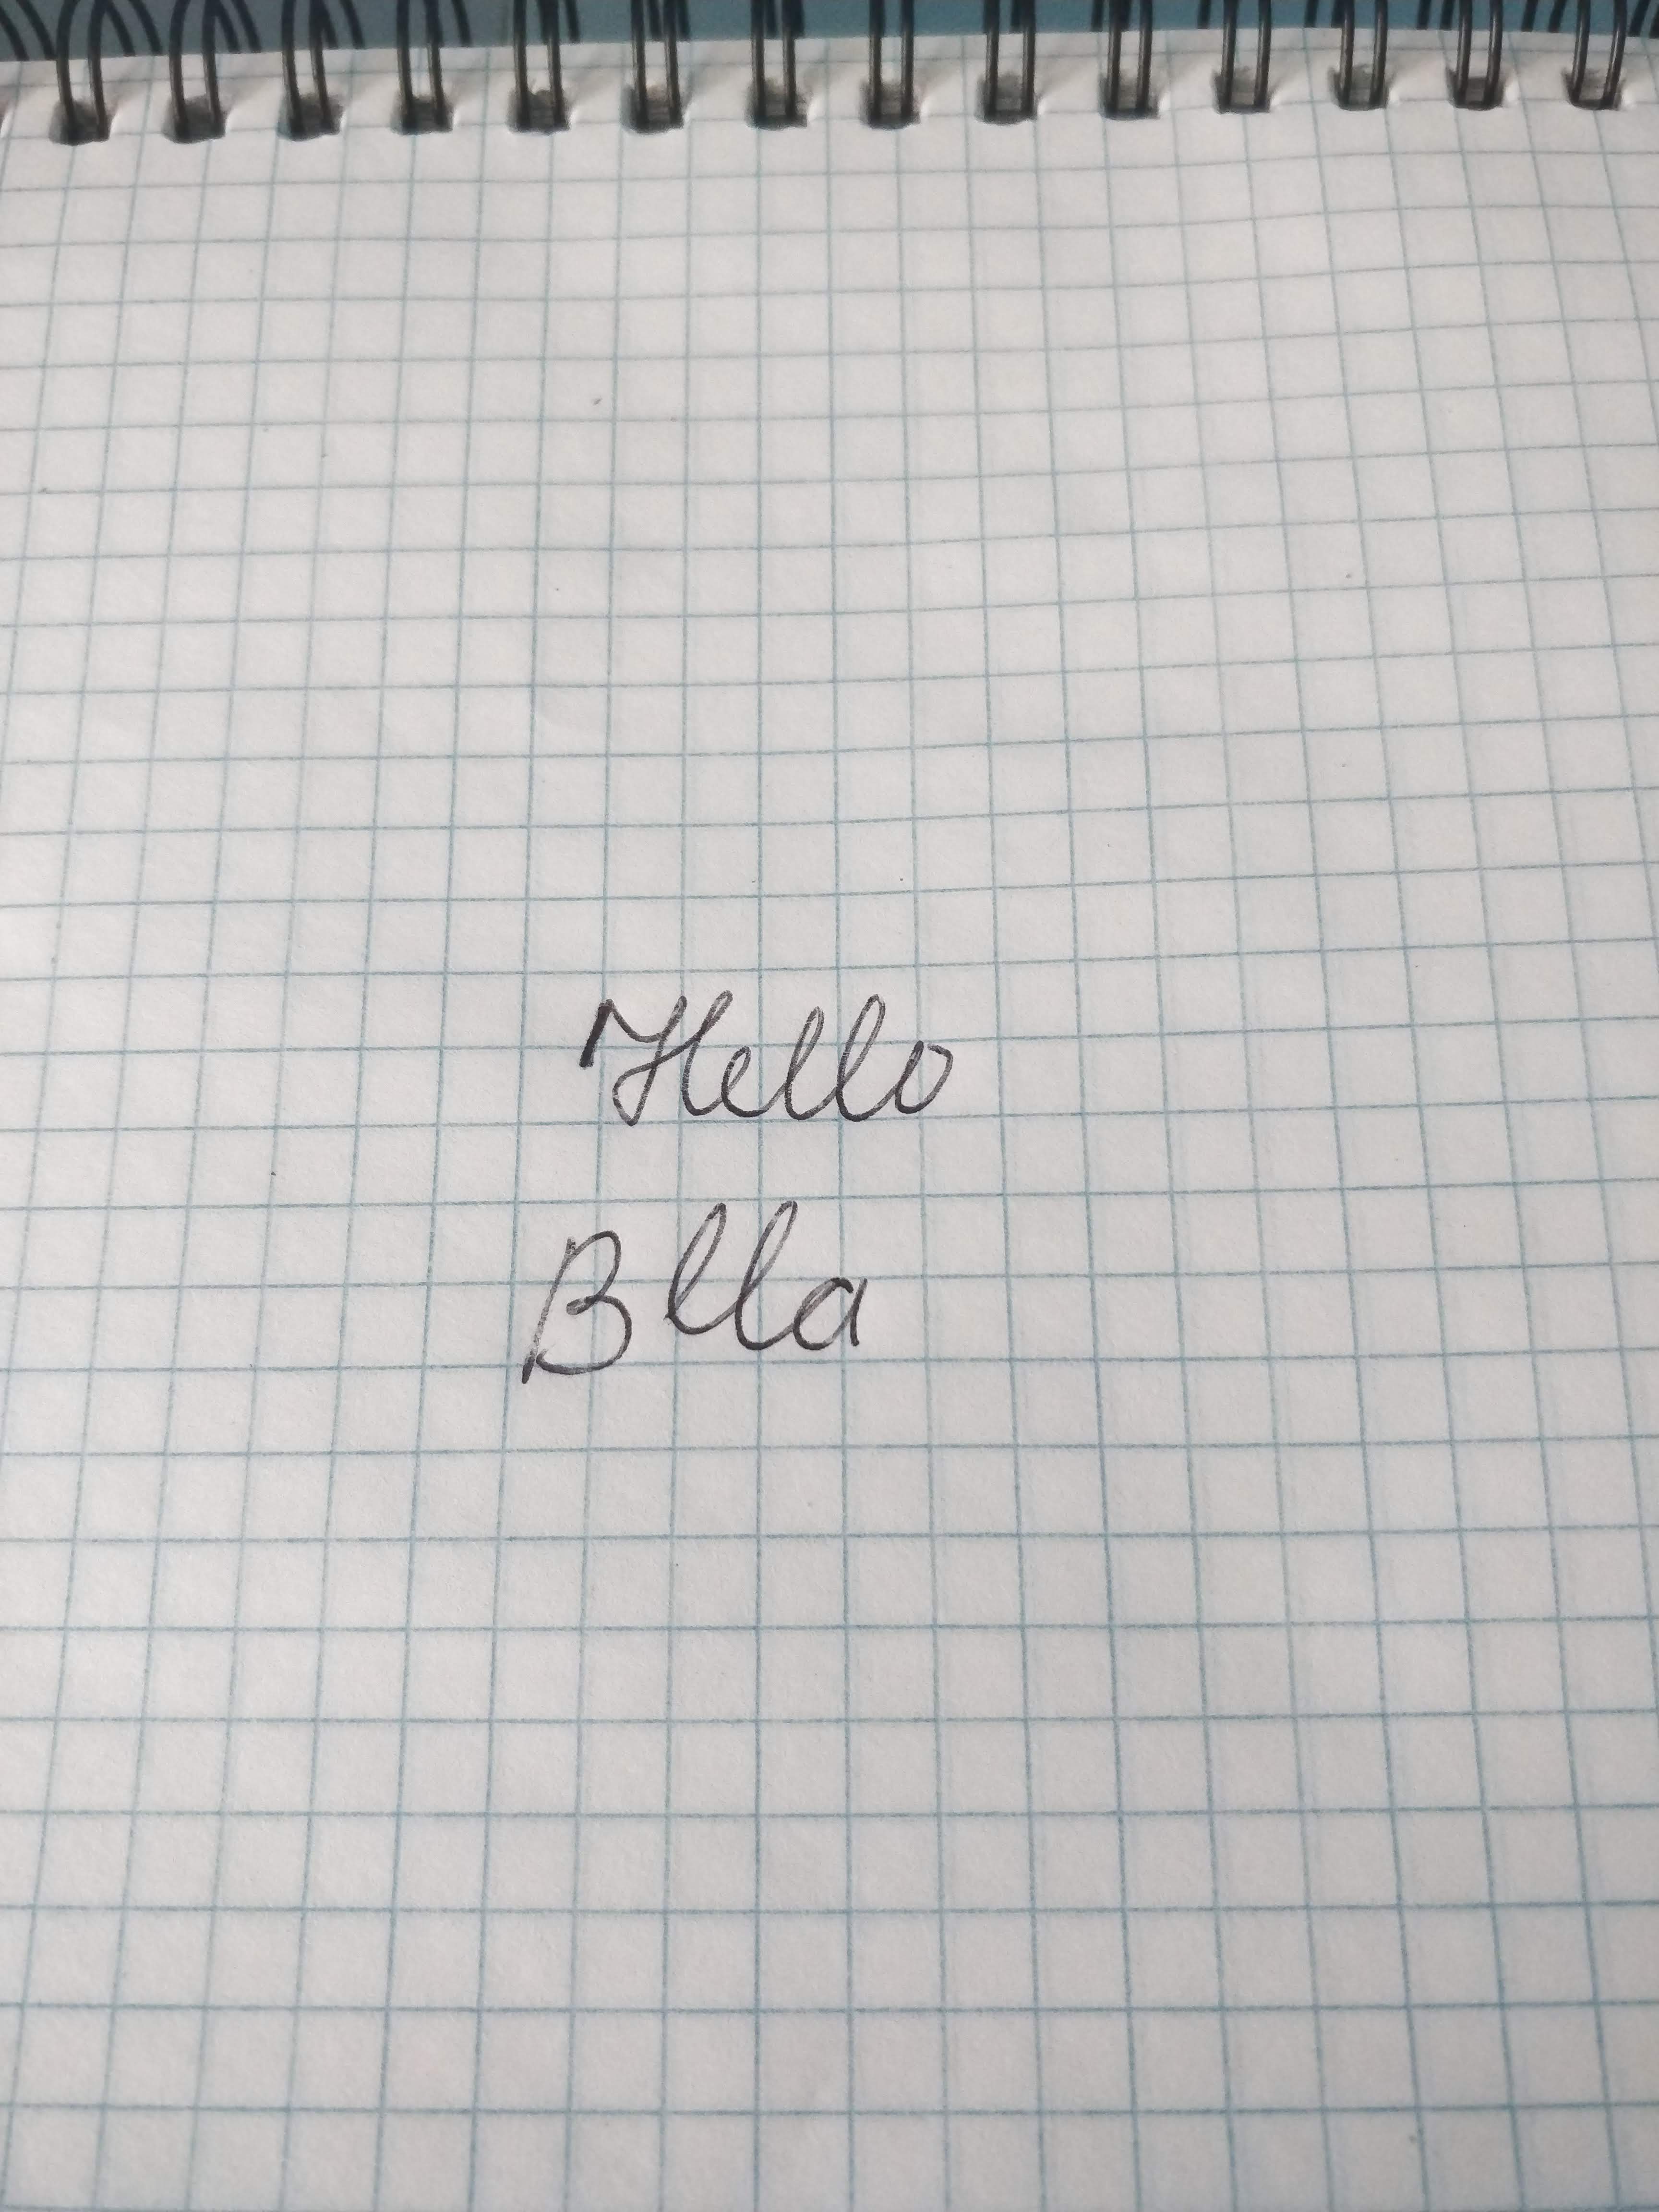 Hello
Blla